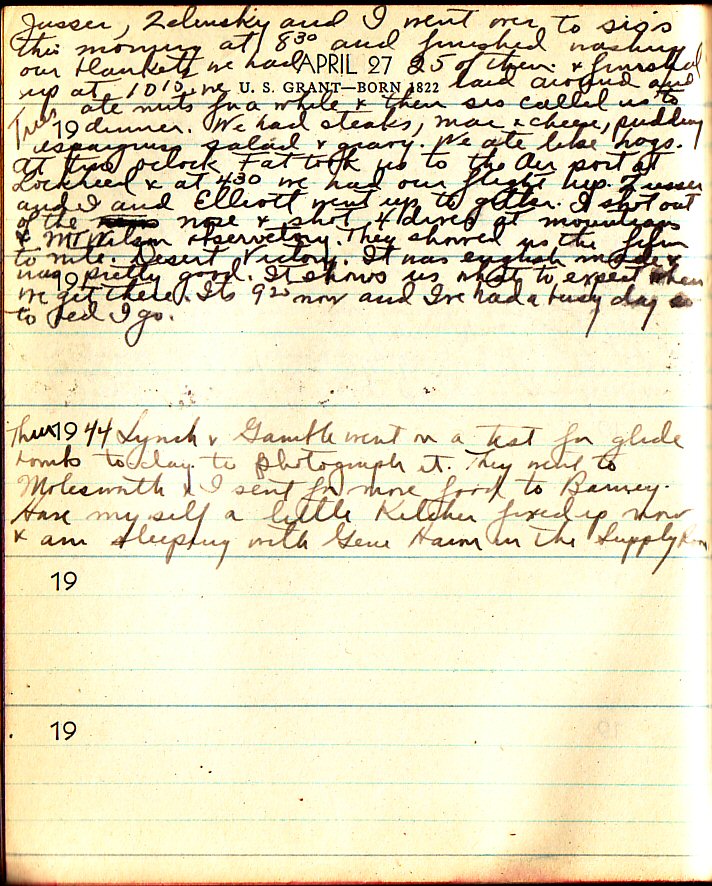 Jusser, Zelinsky and I went over to sis's
this morning at 8 30 and finished washing
our blankets we had APRIL 27 25 of them. & finished
up at 10 15. we U. S. GRANT—BORN 1822 laid around and
ate nuts for a while & then sis called us to
Tues 19 dinner. We had steaks, mac & cheese, pudding
esparguss salad & gravy. We ate like hogs.
at two oclock Fat took us to the Air port at
Lockheed & at 4 30 we had our flight hop. Jusser
and I and Elliott went up to gether. I shot out
of the nose & shot & dived at mountains
& Mt Wilson observetory. They showed us the film
to nite. Desert Victory. It was english made &
19 was pretty good. It shows us what to expect when
we get there. Its 9 20 now and I've had a busy day so
to bed I go.
Thur 19 44 Lynch & Gamble went on a test for glide
bombs to day to photograph it. They went to
Molesworth & I sent for more food to Barney.
Have my self a little Kitchen fixed up now
& am sleeping with Gene in the Supply Room
19
19